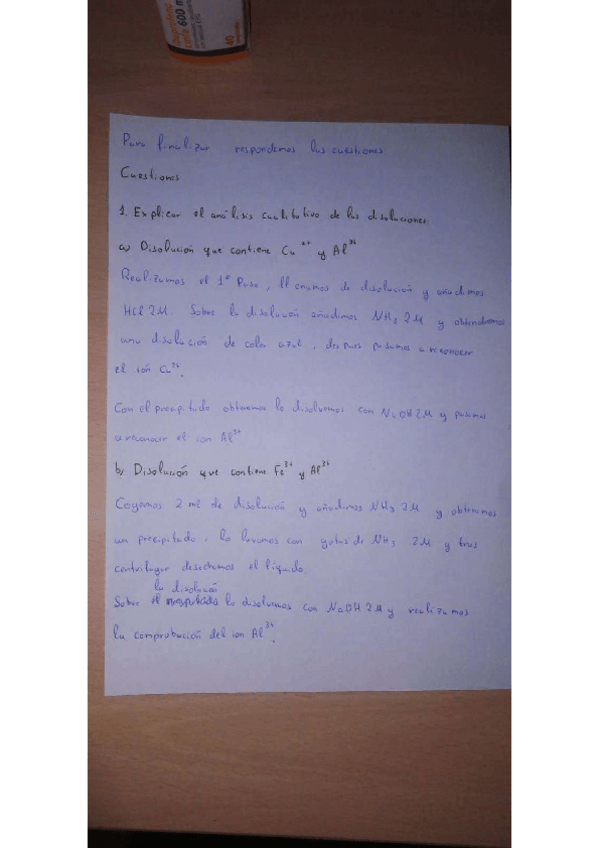 Ibuprofeno
cinfa 600 m
40
Para finalizar respondemos las cuestiones
Cuestiones
1. Explicar el análisis cualitativo de las disoluciones.
a) Disolución que contiene Cu²⁺ y Al³⁺
Realizamos el 1º Paso, llenamos de disolución y añadimos
HCl 2M. Sobre la disolución añadimos NH₃ 2M y obtendremos
una disolución de color azul, despues pasamos a reconocer
el ión Cu²⁺.
Con el precipitado obtenemos lo disolvemos con NaOH 2M y pasamos
a reconocer el ion Al³⁺
b) Disolución que contiene Fe³⁺ y Al³⁺
Cogemos 2 ml de disolución y añadimos NH₃ 2M y obtenemos
un precipitado, lo lavamos con gotas de NH₃ 2M y tras
centrifugar desechamos el líquido.
la disolución
Sobre lo disolvemos con NaOH 2M y realizamos
la comprobación del ion Al³⁺.